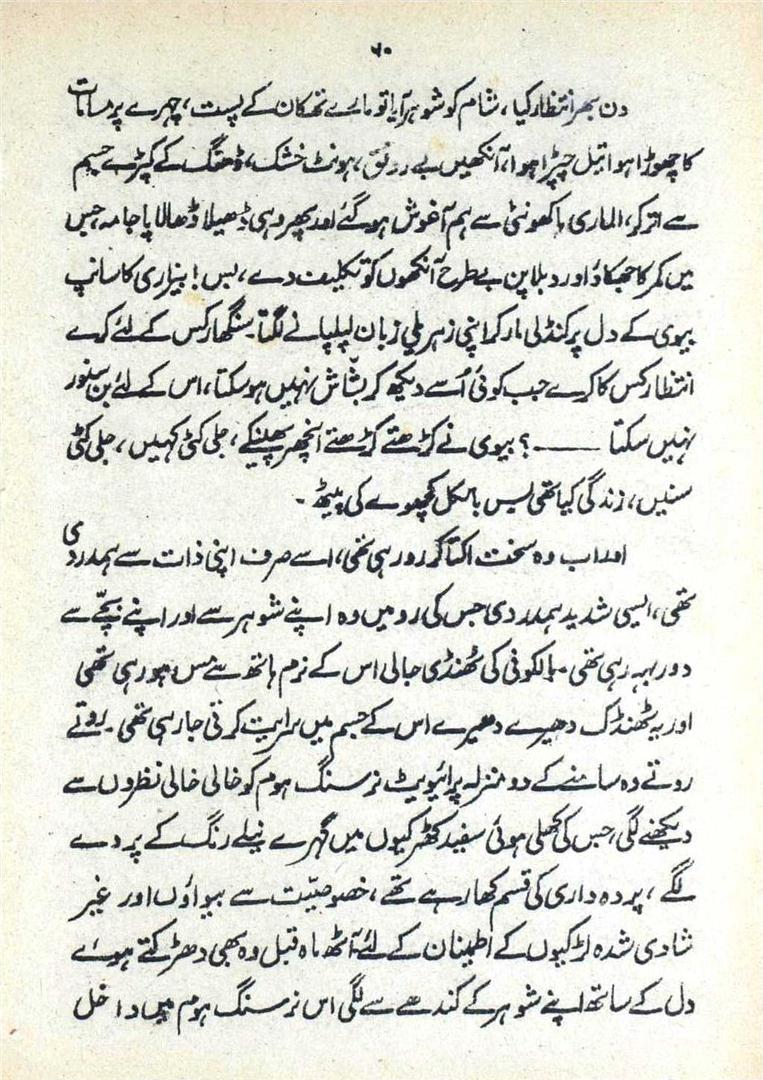 ۶۰
دن بھر انتظار کیا، شام کو شوہر آیا تو مارے تھکان کے پست، چہرے پر مسامات
کا چھوڑا ہوا تیل چپڑا ہوا، آنکھیں بے رونق، ہونٹ خشک، ڈھنگ کے کپڑے جسم
سے اتر کر، الماری یا کھونٹی سے ہم آغوش ہو گئے اور پھر وہی ڈھیلا ڈھالا پاجامہ جس
میں کمر کا جھکاؤ اور دبلا پن بے طرح آنکھوں کو تکلیف دے، بس! بیزاری کا سانپ
بیوی کے دل پر کنڈلی مار کر اپنی زہریلی زبان لپلپانے لگتا۔ سنگھار کس کے لئے کرے
انتظار کس کا کرے جب کوئی اُسے دیکھ کر بشّاش نہیں ہو سکتا، اس کے لئے بن سنور
نہیں سکتا ——— ؟ بیوی نے کڑھتے کڑھتے انچھر پھینکے، جلی کٹی کہیں، جلی کٹی
سنیں، زندگی کیا تھی بس بالکل کچھوے کی پیٹھ ۔
اور اب وہ سخت اکتا کر رو رہی تھی، اسے صرف اپنی ذات سے ہمدردی
تھی، ایسی شدید ہمدردی جس کی رو میں وہ اپنے شوہر سے اور اپنے بچّے سے
دور بہہ رہی تھی۔ بالکونی کی ٹھنڈی جالی اس کے نرم ہاتھ سے مس ہو رہی تھی
اور یہ ٹھنڈک دھیرے دھیرے اس کے جسم میں سرایت کرتی جا رہی تھی۔ روتے
روتے وہ سامنے کے دو منزلہ پرائیویٹ نرسنگ ہوم کو خالی خالی نظروں سے
دیکھنے لگی، جس کی کھلی ہوئی سفید کھڑکیوں میں گہرے نیلے رنگ کے پردے
لگے، پردہ داری کی قسم کھا رہے تھے، خصوصیّت سے بیواؤں اور غیر
شادی شدہ لڑکیوں کے اطمینان کے لئے آٹھ ماہ قبل وہ بھی دھڑکتے ہوئے
دل کے ساتھ اپنے شوہر کے کندھے سے لگی اس نرسنگ ہوم میں داخل